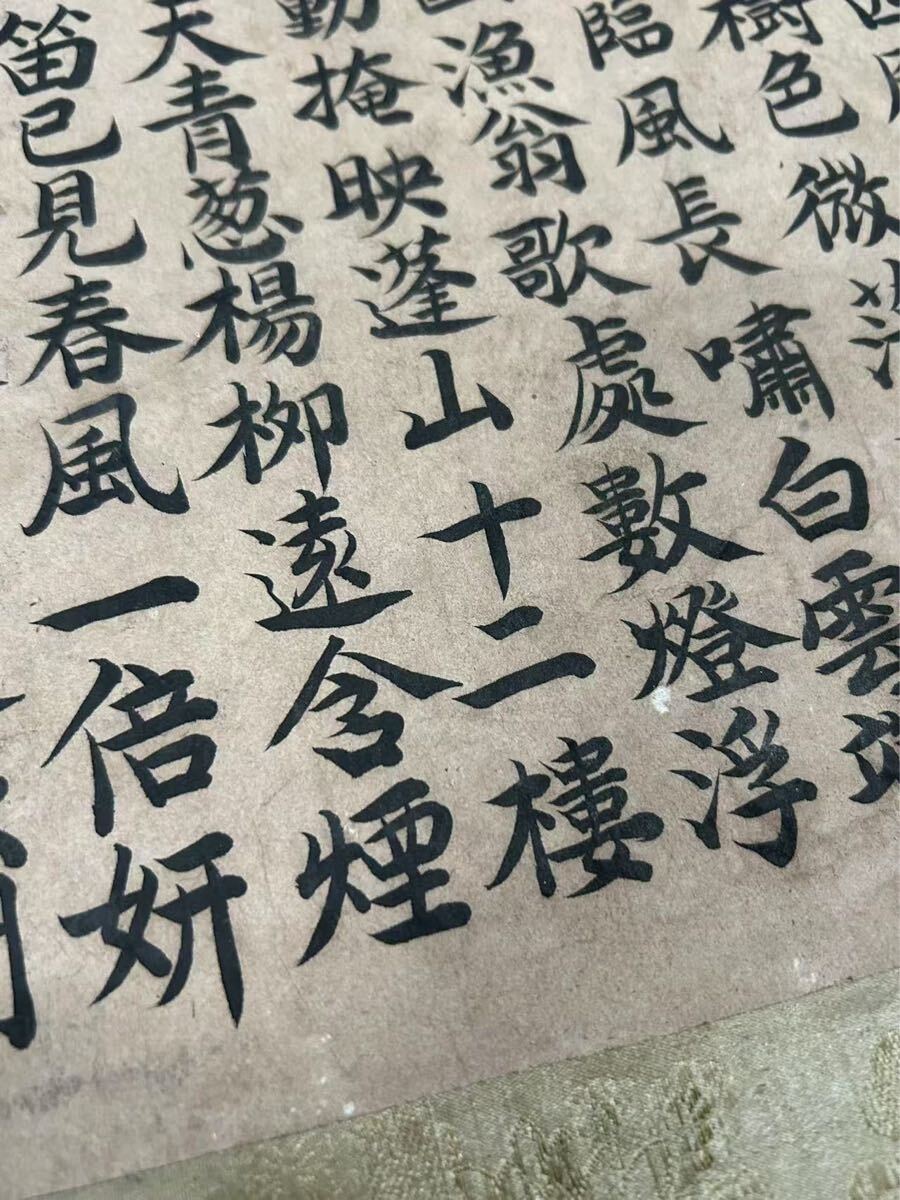 樹色微
臨風長嘯白雲
漁翁歌處數燈浮
掩映蓬山十二樓
天青葱楊柳遠含煙
笛已見春風一倍妍